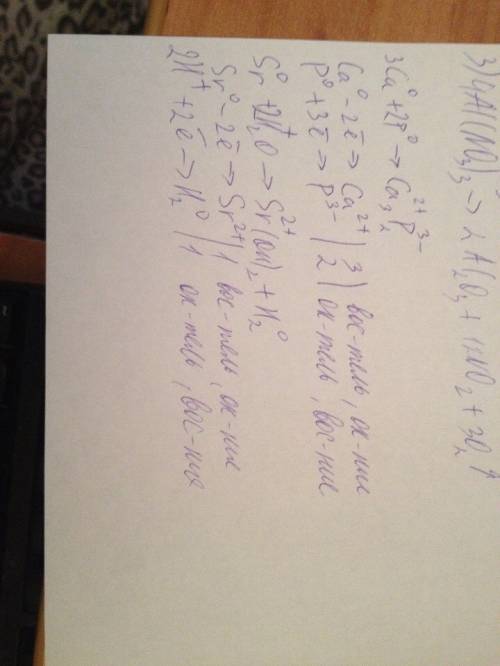 3) 4Al(NO₃)₃ → 2Al₂O₃ + 12NO₂ + 3O₂↑
3Ca⁰ + 2P⁰ → Ca₃²⁺P₂³⁻
Ca⁰ - 2ē → Ca²⁺ | 3 | вос-тель, ок-ние
P⁰ + 3ē → P³⁻ | 2 | ок-тель, вос-ние
Sr⁰ + 2H₂⁺O → Sr²⁺(OH)₂ + H₂⁰
Sr⁰ - 2ē → Sr²⁺ | 1 вос-тель, ок-ние
2H⁺ + 2ē → H₂⁰ | 1 ок-тель, вос-ние